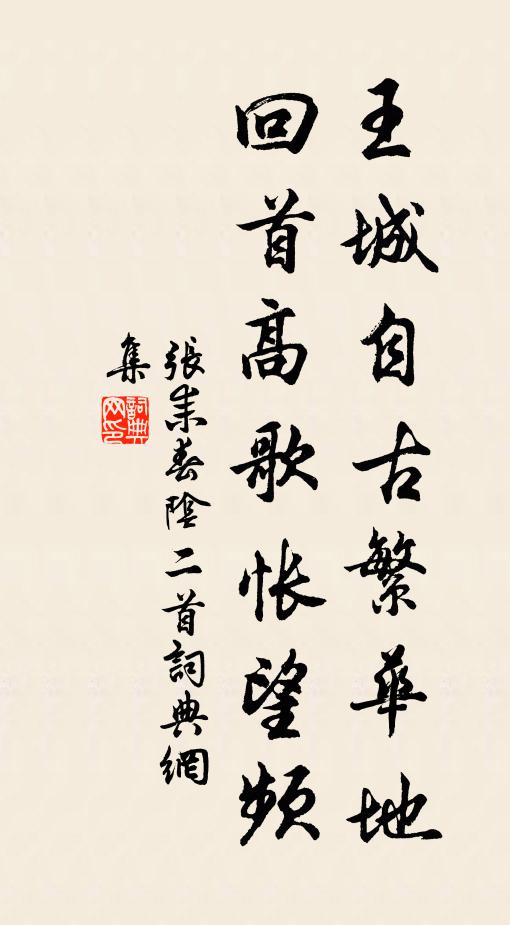 王城自古繁華地
回首高歌悵望頻
張耒春陰二首詞典網
集
詞典
网印